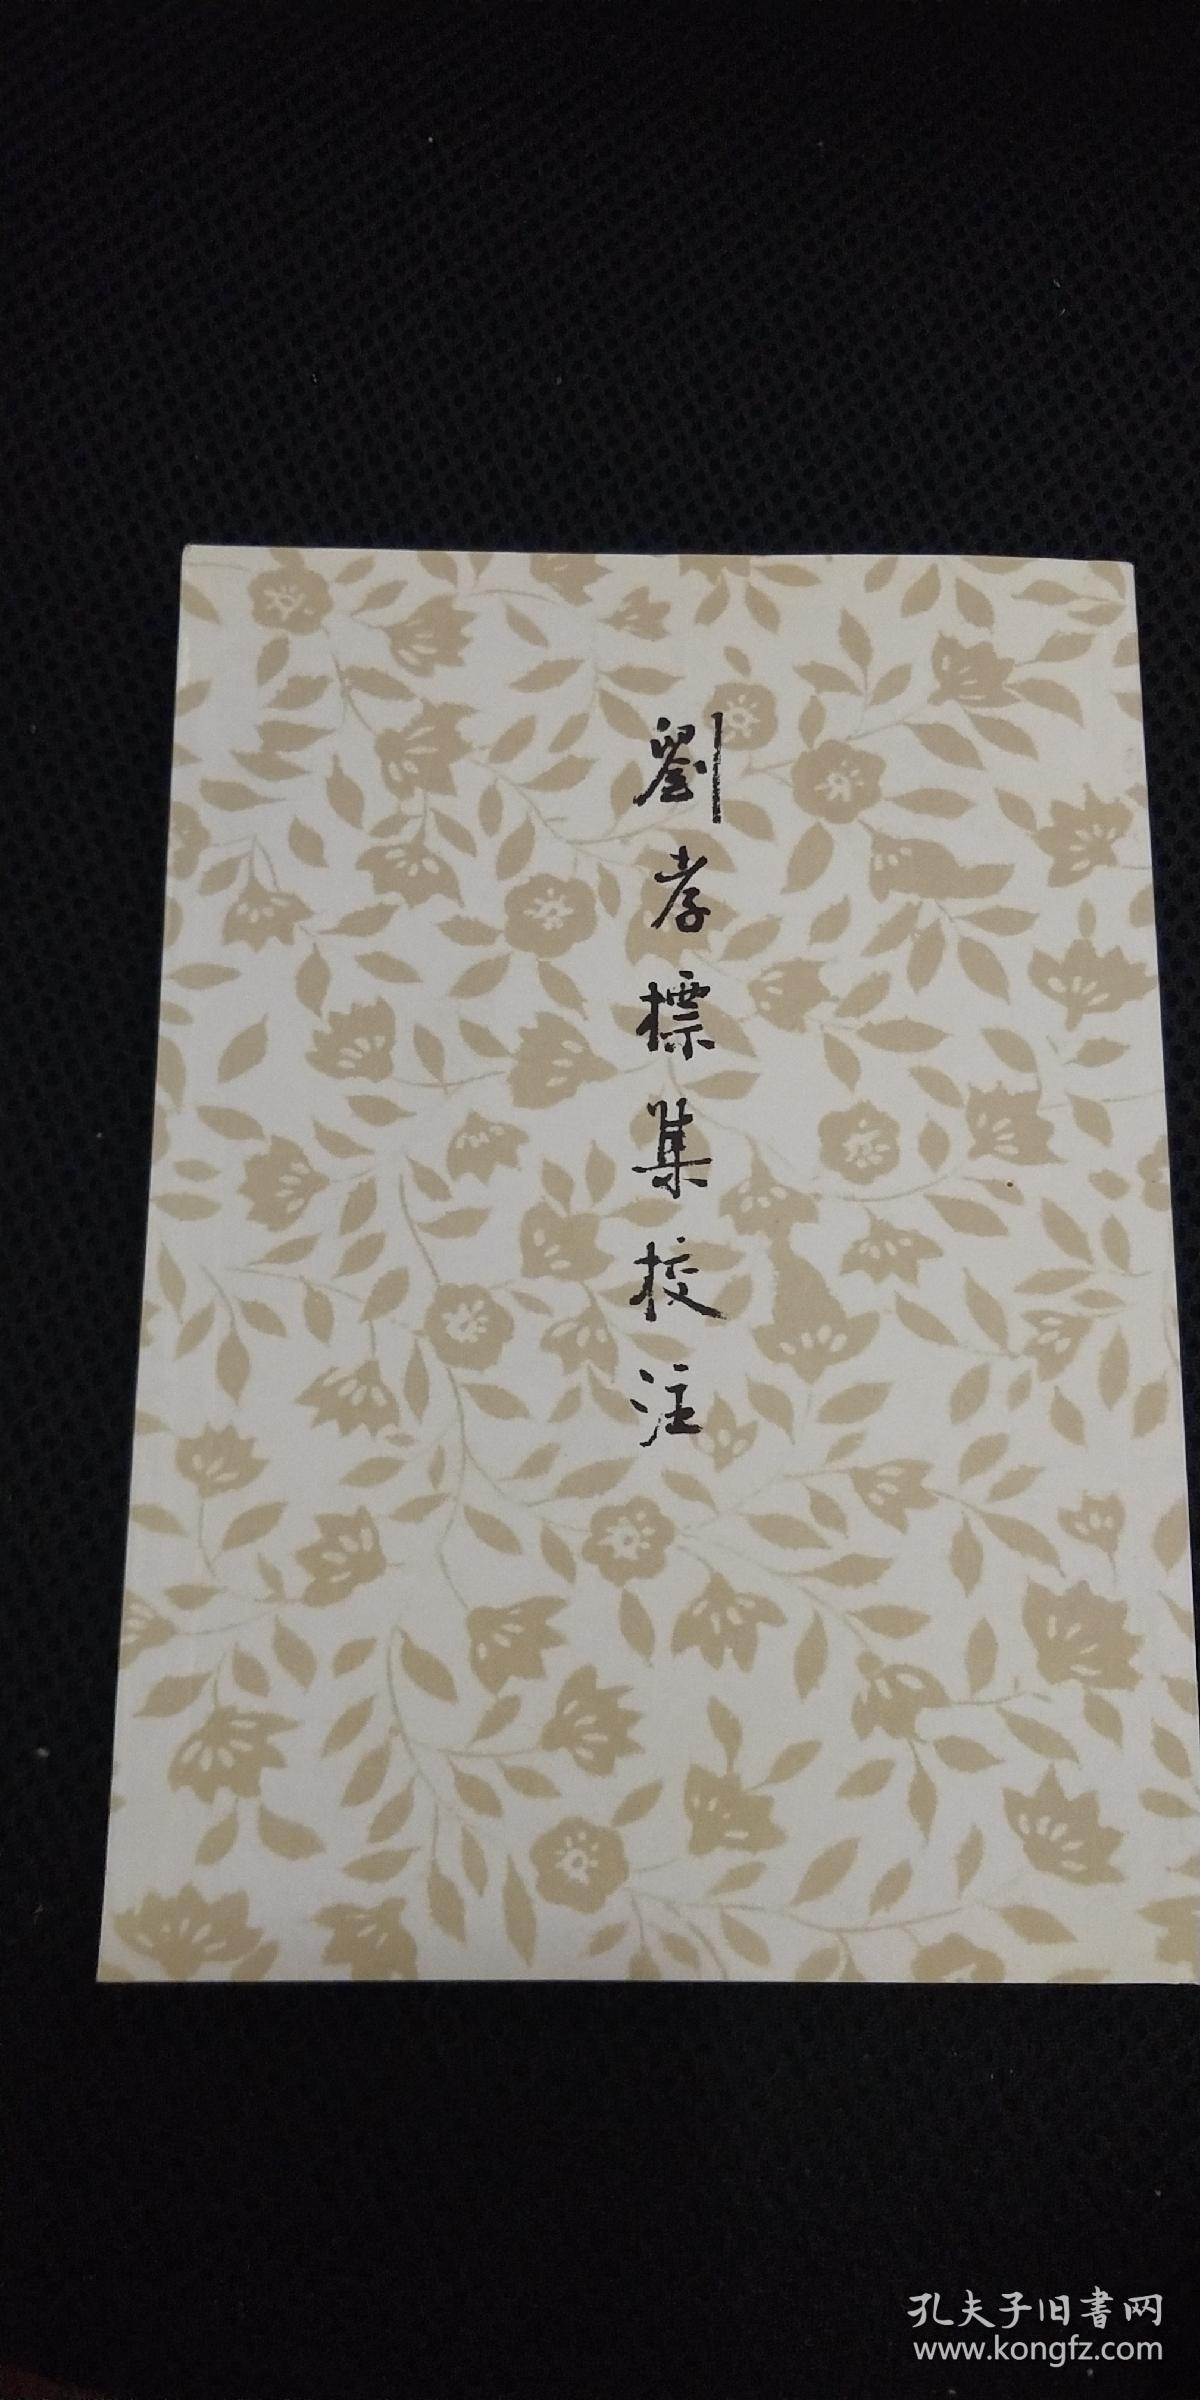 劉孝標集校注
孔夫子旧書网
www.kongfz.com